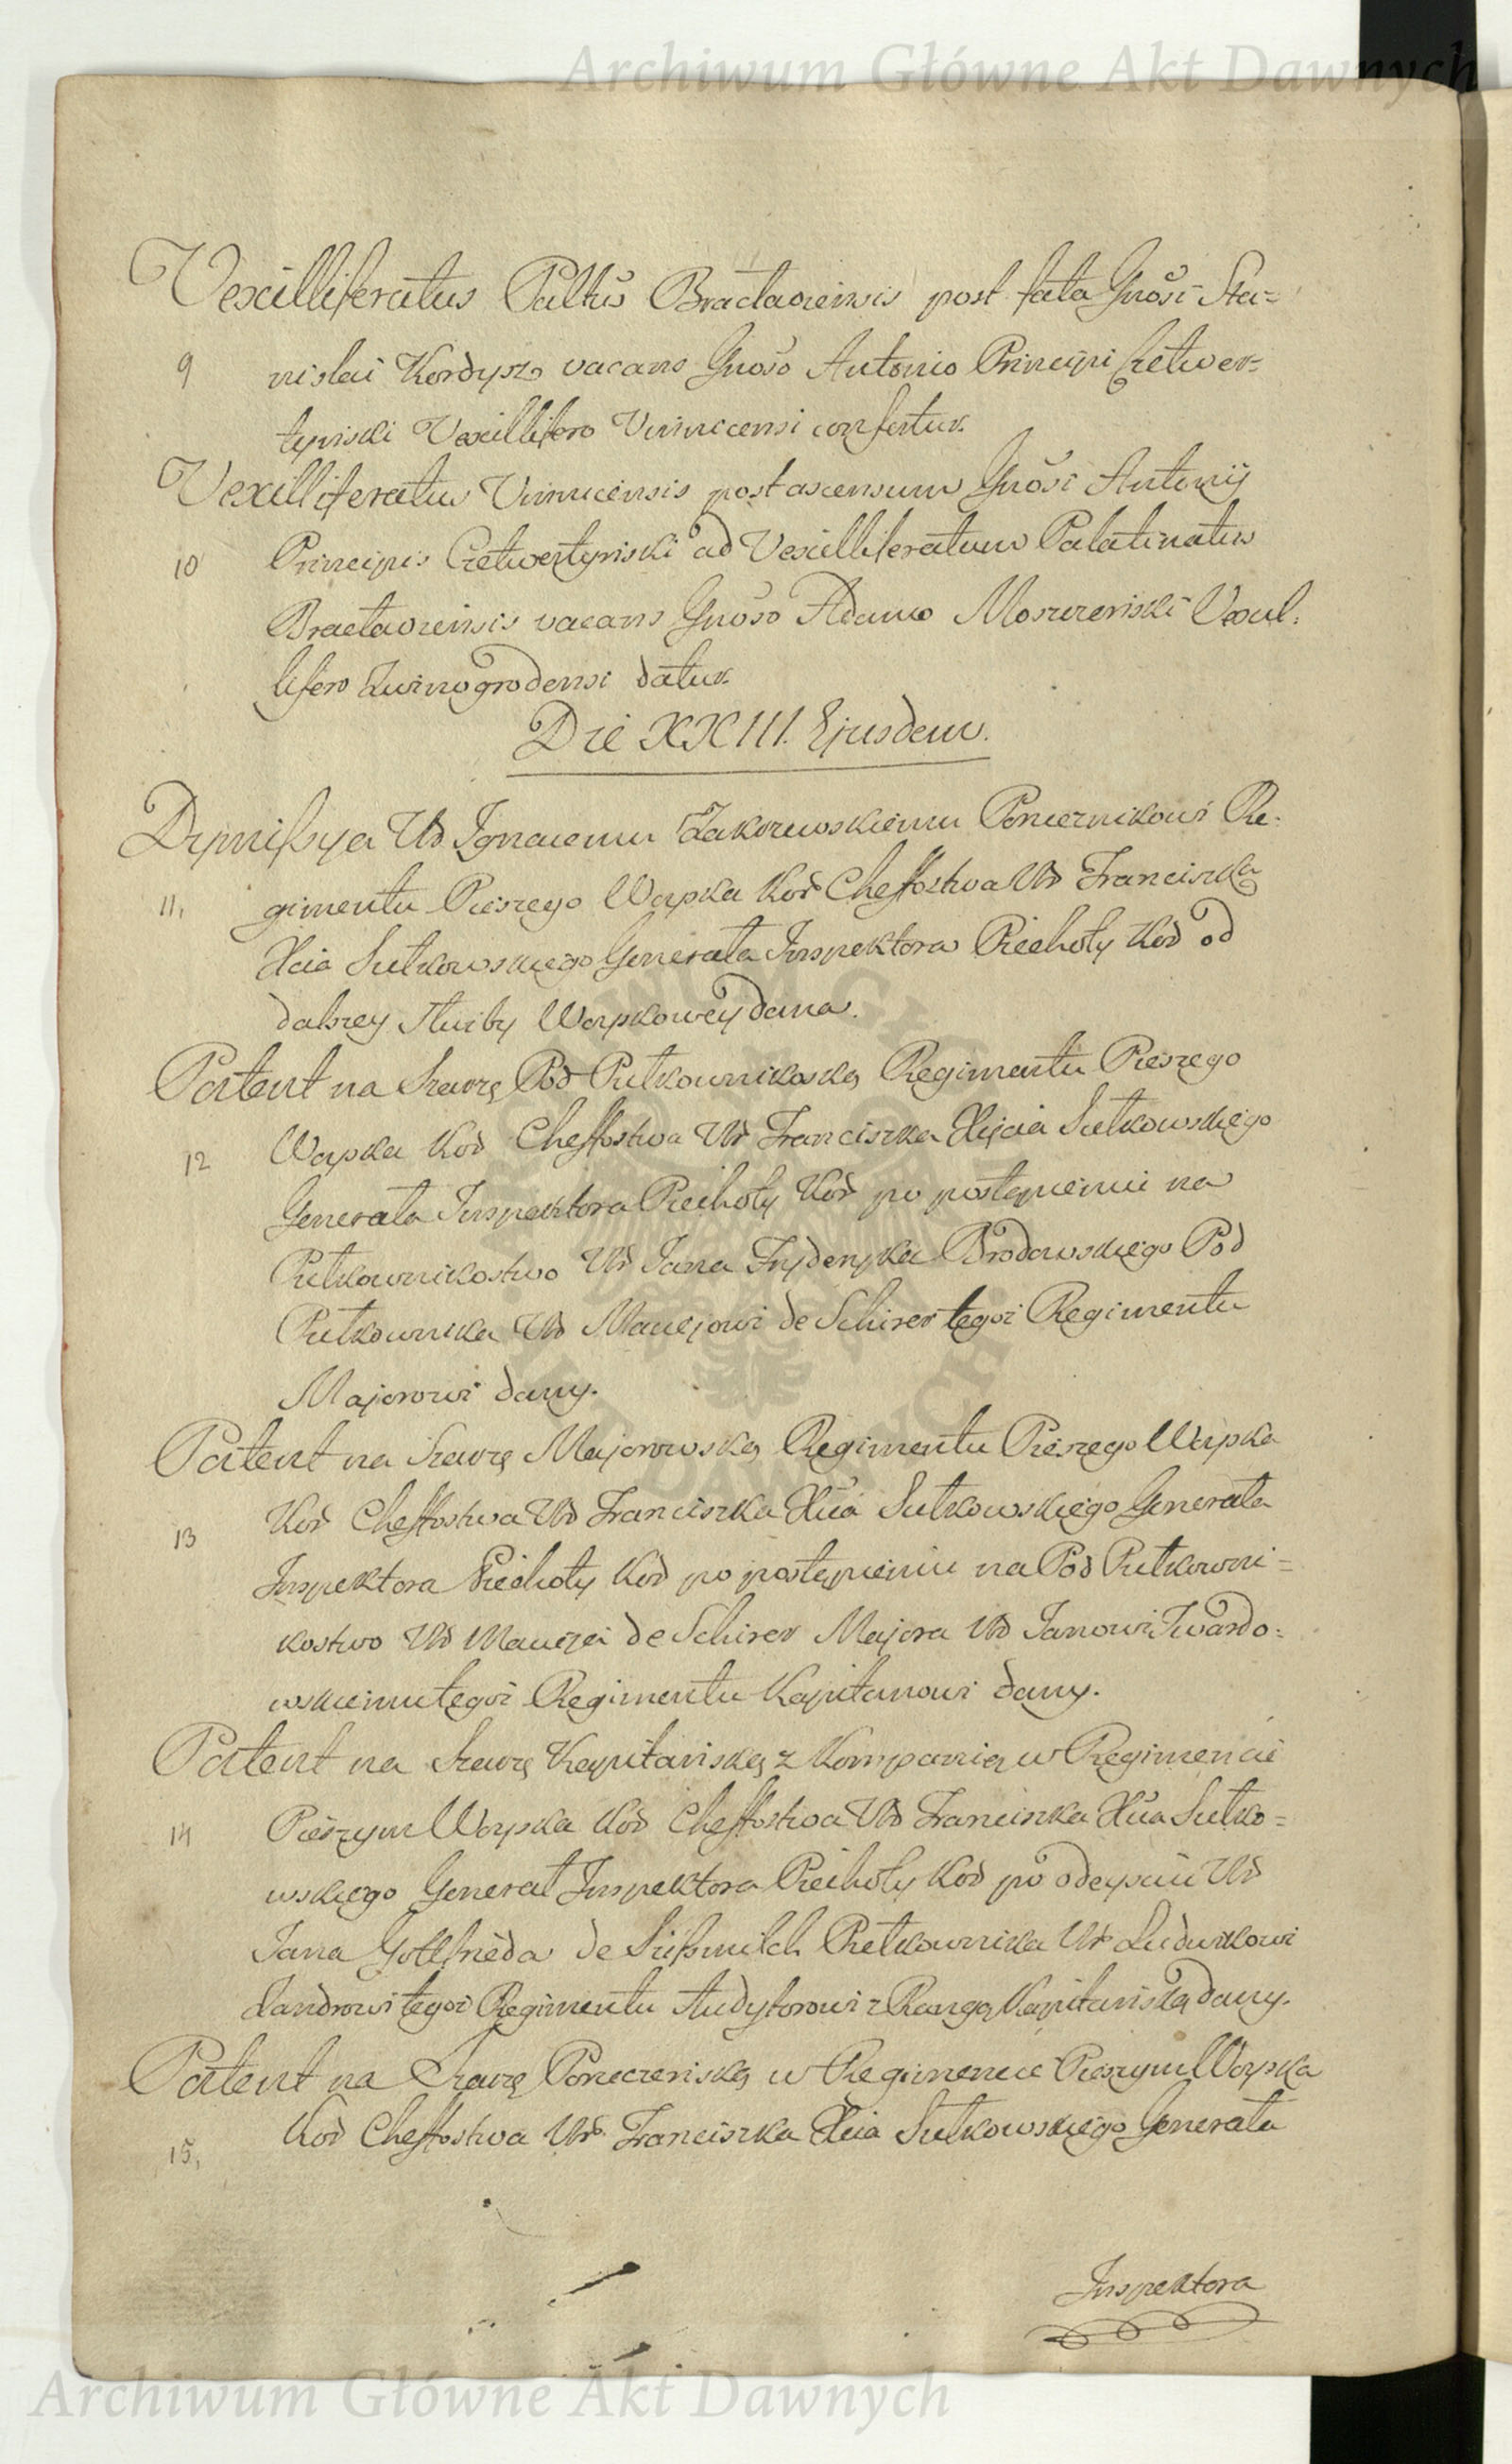 Archiwum Główne Akt Dawnych
Vexilliferatus Paltūs Braclaviensis post fata Gnosi Sta=
9 nislai Kordysz vacans Gnoso Antonio Principi Czetwer=
tynski Vexillifero Vinnicensi confertur.
Vexilliferatus Vinnicensis post ascensum Gnosi Antonij
10 Principis Czetwertynski ad Vexilliferatum Palatinatus
Braclaviensis vacans Gnoso Adamo Moszczenski Vexil=
lifero Zwinogrodensi datur.
Die XXIII. Ejusdem.
Dymissya Ur Ignacemu Zakrzewskiemu Porucznikowi Re=
11, gimentu Pieszego Woyska Kor Cheffostwa Ur Franciszka
Xcia Sułkowskiego Generała Inspektora Piechoty Kor od
dalszey służby Woyskowey dana.
Patent na szarżę Pod Pułkownikoską Regimentu Pieszego
12 Woyska Kor Cheffostwa Ur Franciszka Xięcia Sułkowskiego
Generała Inspektora Piechoty Kor po postąpieniu na
Pułkownikostwo Ur Jana Frydenyka Brodowskiego Pod
Pułkownika Ur Maciejowi de Schirer tegoż Regimentu
Majorowi dany.
Patent na szarżę Majorowską Regimentu Pieszego Woyska
13 Kor Cheffostwa Ur Franciszka Xcia Sułkowskiego Generała
Inspektora Piechoty Kor po postąpieniu na Pod Pułkowni=
kostwo Ur Macieja de Schirer Majora Ur Janowi Twardo=
wskiemu tegoż Regimentu Kapitanowi dany.
Patent na szarżę Kapitańską z Kompanią w Regimencie
14 Pieszym Woyska Kor Cheffostwa Ur Franciszka Xcia Sułko=
wskiego Generał Inspektora Piechoty Kor po odeyściu Ur
Jana Gottfrieda de Süssmilch Pułkownika Ur Ludwikowi
tegoż Regimentu Audytorowi z Rangą Kapitańską dany.
Patent na szarżę Poruczeńską w Regimencie Pieszym Woyska
15, Kor Cheffostwa Ur Franciszka Xcia Sułkowskiego Generała
Inspektora
Archiwum Główne Akt Dawnych